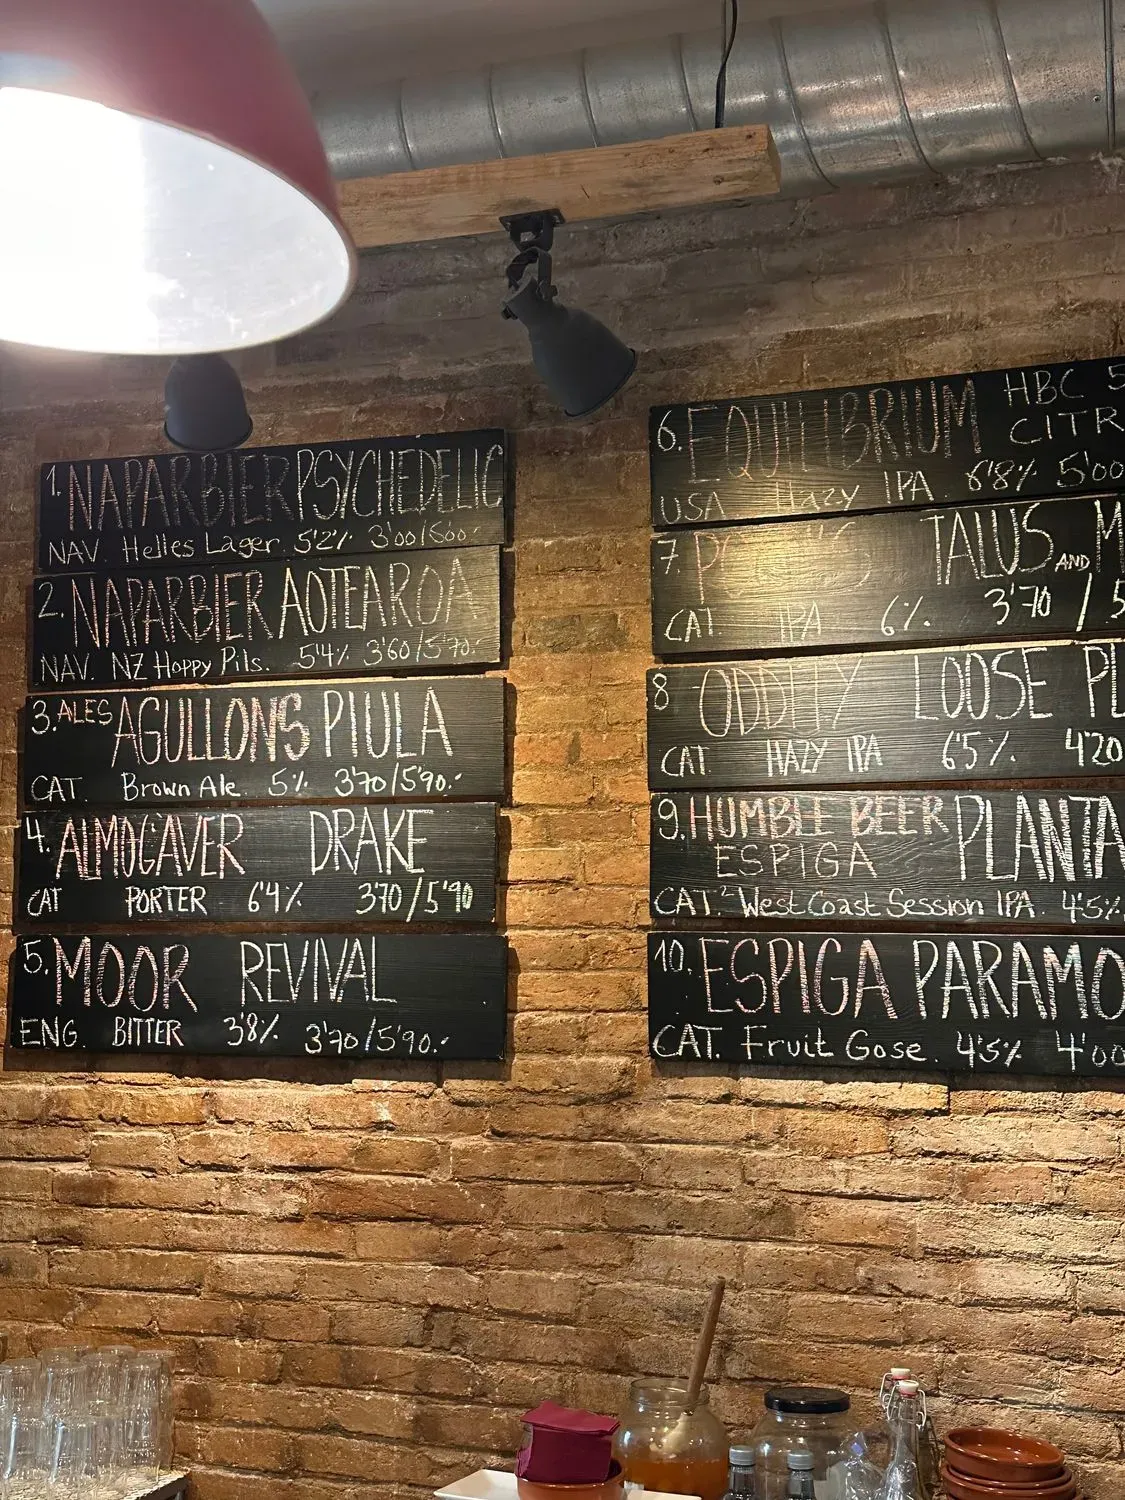 1. NAPARBIER PSYCHEDELIC
NAV. Helles Lager. 5'2% 3'00/5'00.-
2. NAPARBIER AOTEAROA
NAV. NZ Hoppy Pils. 5'4% 3'60/5'70.-
3. ALES AGULLONS PIULA
CAT. Brown Ale. 5% 3'70/5'90.-
4. ALMOGÀVER DRAKE
CAT PORTER 6'4% 3'70/5'90
5. MOOR REVIVAL
ENG. BITTER 3'8% 3'70/5'90.-
6. EQUILIBRIUM HBC 5
CITR
USA Hazy IPA 6'8% 5'00
7. TALUS AND M
CAT. IPA 6% 3'70 / 5
8 ODDITY LOOSE PL
CAT HAZY IPA 6'5% 4'20
9. HUMBLE BEER PLANTA
ESPIGA
CAT. West Coast Session IPA. 4'5%
10. ESPIGA PARAMO
CAT. Fruit Gose. 4'5% 4'00